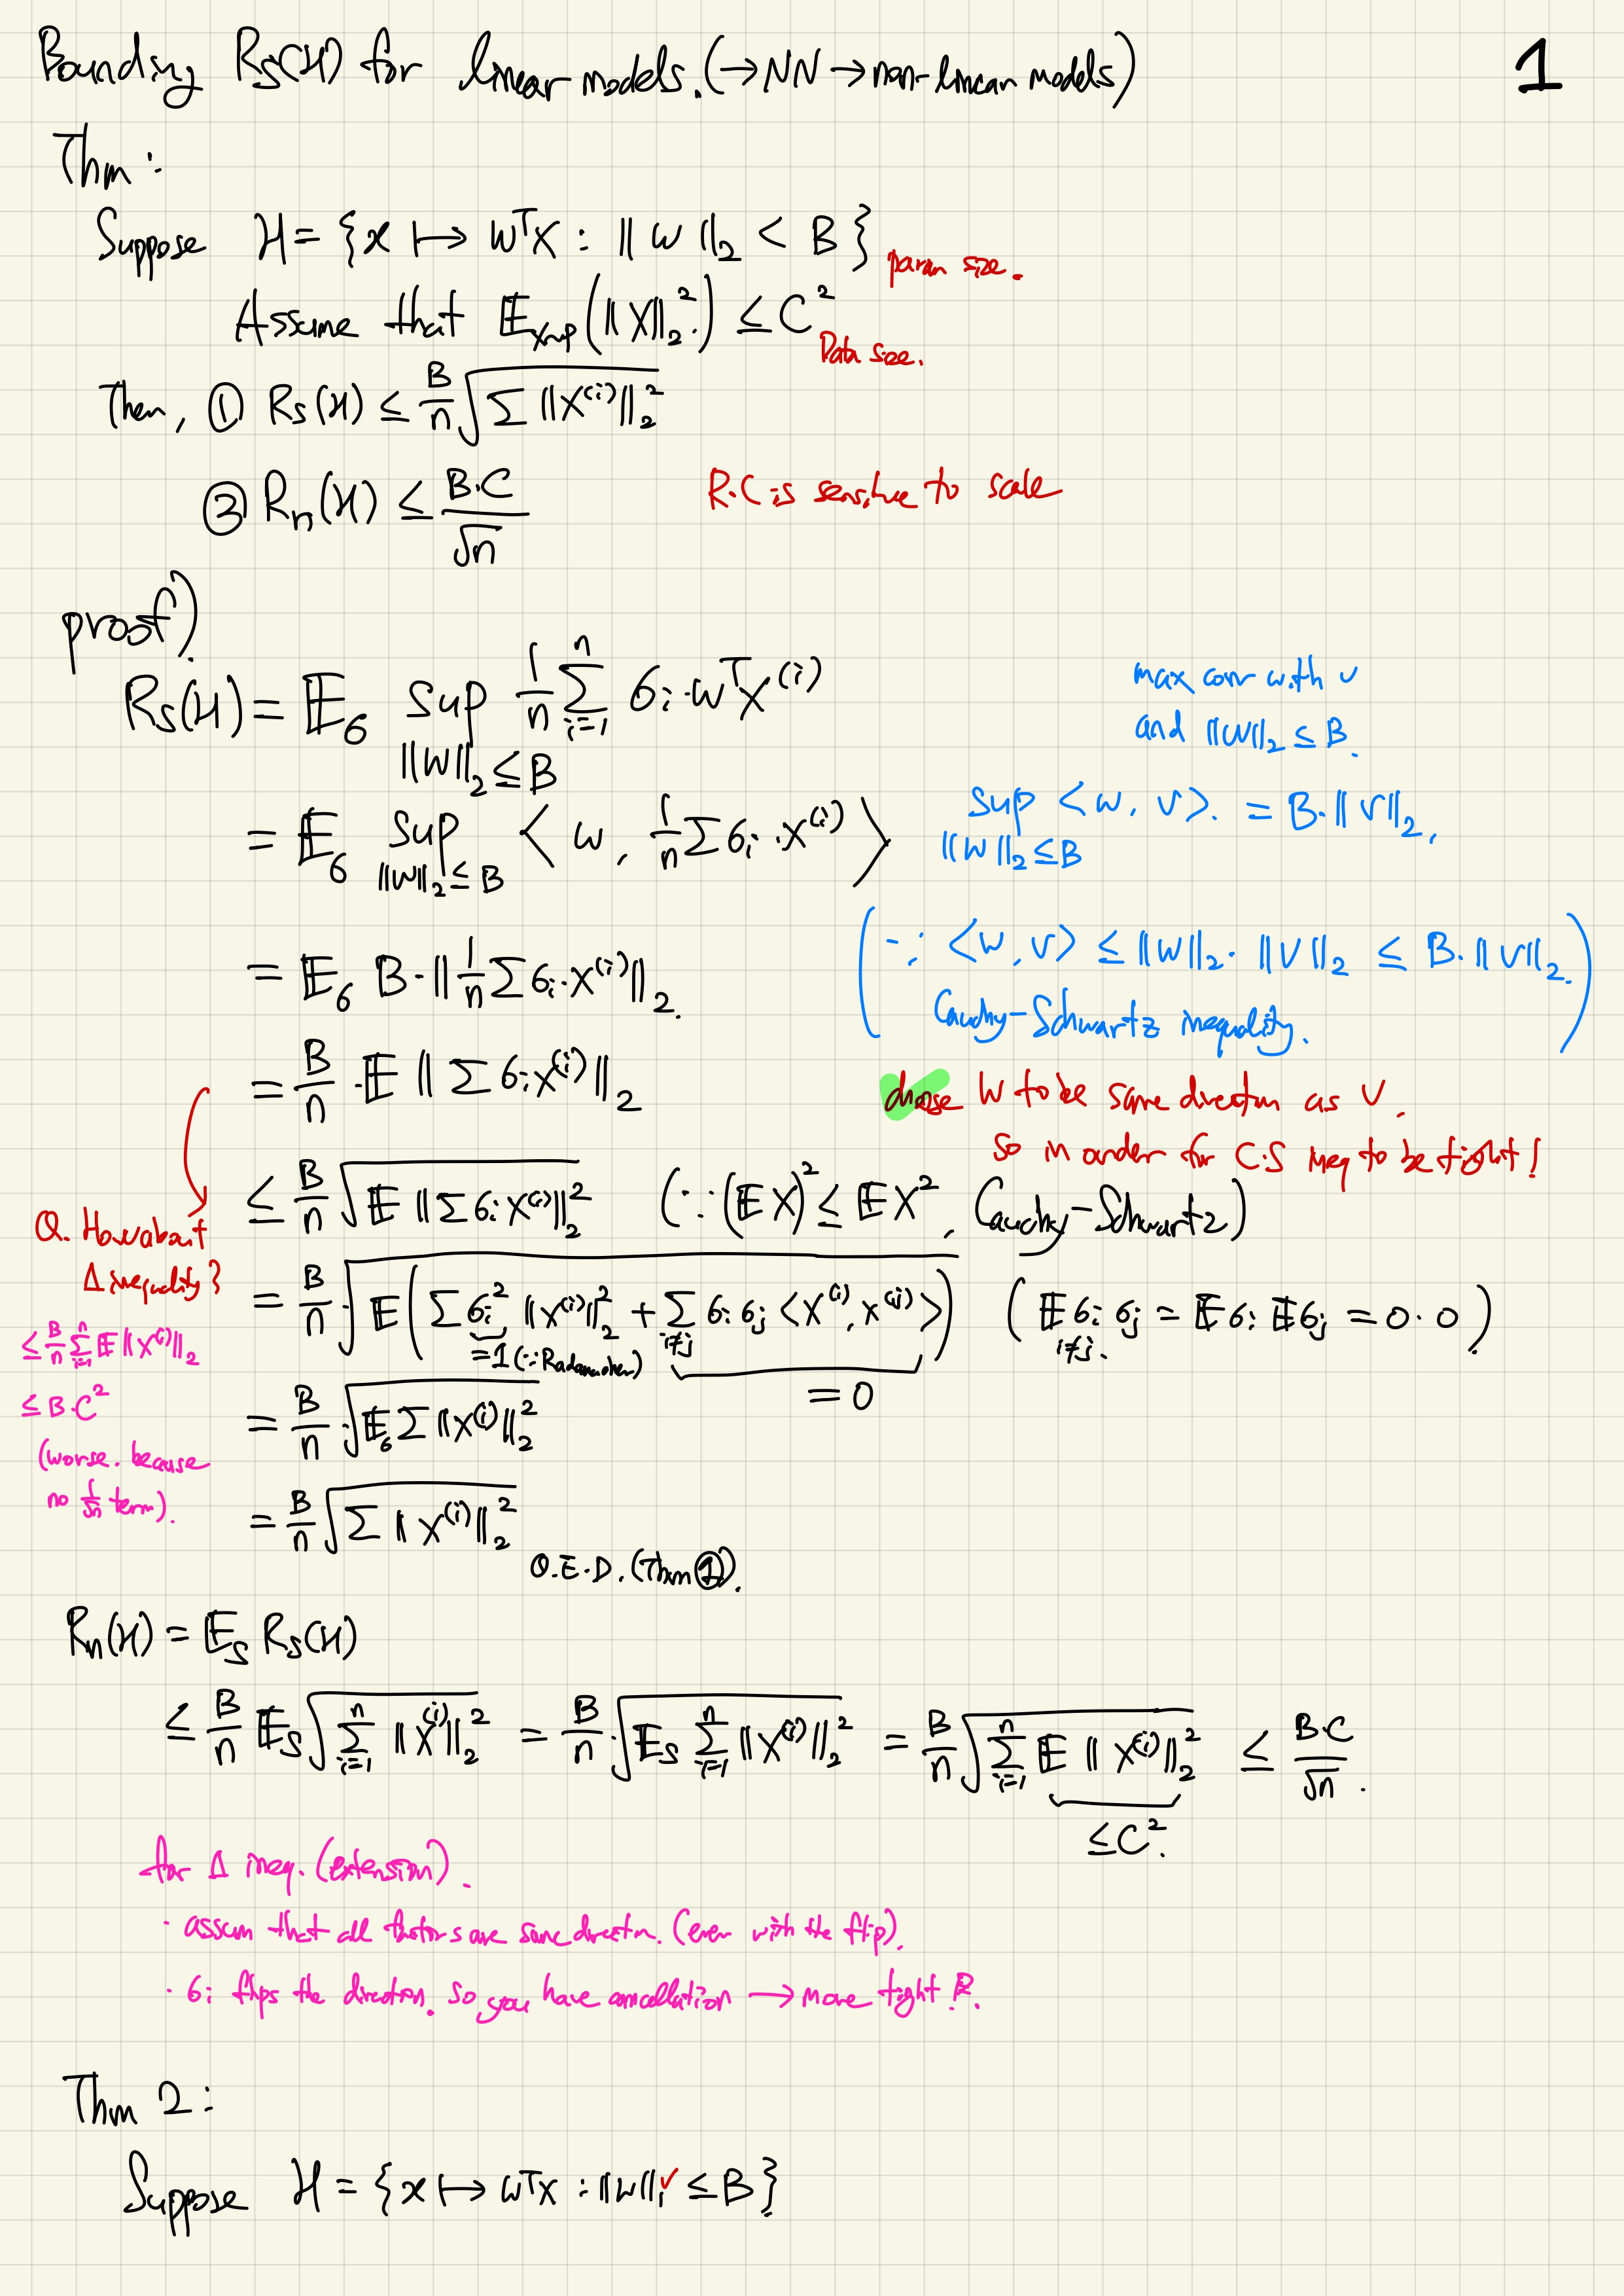 Bounding Rs(H) for linear models. (→ NN → non-linear models)
1
Thm:
Suppose H = {x ↦ wᵀx : ‖w‖₂ < B} param size.
Assume that 𝔼ₓ~ₚ(‖X‖₂²) ≤ C² Data size.
Then, ① Rs(H) ≤ B/n √(Σ ‖x⁽ⁱ⁾‖₂²)
② Rn(H) ≤ B·C/√n
R.C is sensitive to scale
proof)
Rs(H) = 𝔼_σ sup_{‖w‖₂ ≤ B} 1/n Σ_{i=1}^n σᵢ·wᵀx⁽ⁱ⁾
max corr with v
and ‖w‖₂ ≤ B.
= 𝔼_σ sup_{‖w‖₂ ≤ B} ⟨w, 1/n Σ σᵢ·x⁽ⁱ⁾⟩
sup_{‖w‖₂ ≤ B} <w, v>. = B·‖v‖₂.
= 𝔼_σ B·‖1/n Σ σᵢ·x⁽ⁱ⁾‖₂.
(∵ <w, v> ≤ ‖w‖₂·‖v‖₂ ≤ B·‖v‖₂.
Cauchy-Schwartz inequality.)
= B/n · 𝔼 ‖Σ σᵢx⁽ⁱ⁾‖₂
chose w to be same direction as v.
so in order for C.S ineq to be tight!
≤ B/n √(𝔼 ‖Σ σᵢx⁽ⁱ⁾‖₂²) (∵ (𝔼X)² ≤ 𝔼X², Cauchy-Schwartz)
Q. How about
Δ inequality?
≤ B/n Σ_{i=1}^n 𝔼‖x⁽ⁱ⁾‖₂
≤ B·C²
(worse. because
no 1/√n term).
= B/n · √(𝔼(Σ σᵢ² ‖x⁽ⁱ⁾‖₂² + Σ_{i≠j} σᵢσⱼ <x⁽ⁱ⁾, x⁽ʲ⁾>)) (𝔼_{i≠j} σᵢσⱼ = 𝔼σᵢ 𝔼σⱼ = 0·0)
=1 (∵ Radamacher)
= 0
= B/n · √(𝔼_σ Σ ‖x⁽ⁱ⁾‖₂²)
= B/n √(Σ ‖x⁽ⁱ⁾‖₂²)
Q.E.D. (Thm ①).
Rn(H) = 𝔼s Rs(H)
≤ B/n 𝔼s √(Σ_{i=1}^n ‖x⁽ⁱ⁾‖₂²) = B/n · √(𝔼s Σ_{i=1}^n ‖x⁽ⁱ⁾‖₂²) = B/n √(Σ_{i=1}^n 𝔼 ‖x⁽ⁱ⁾‖₂²) ≤ B·C/√n.
≤ C².
for Δ ineq. (extension).
· assum that all are same direction. (even with the flip).
· σᵢ flips the direction. so you have cancellation → more tight
Thm 2:
Suppose H = {x ↦ wᵀx : ‖w‖₁ ✓ ≤ B}